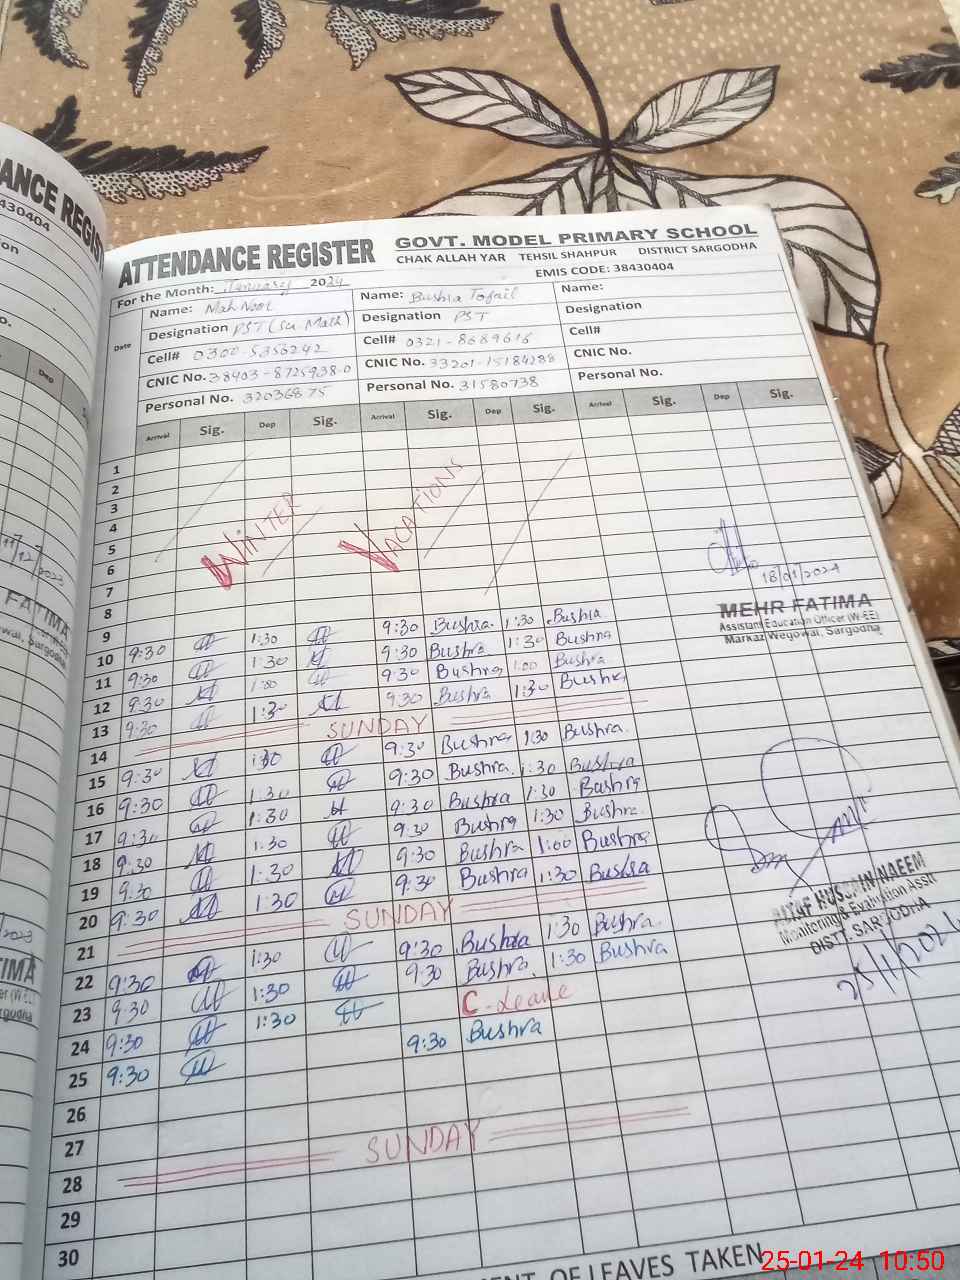 ATTENDANCE REGISTER
GOVT. MODEL PRIMARY SCHOOL
CHAK ALLAH YAR TEHSIL SHAHPUR DISTRICT SARGODHA
EMIS CODE: 38430404
For the Month: January 2024
Date
Name: Mah Noor
Designation PST (Sci-Math)
Cell# 0300-5356242
CNIC No. 38403-8725938-0
Personal No. 32036875
Name: Bushra Tofail
Designation PST
Cell# 0321-8689616
CNIC No. 33201-15184288
Personal No. 31580738
Name:
Designation
Cell#
CNIC No.
Personal No.
Arrival Sig. Dep Sig. Arrival Sig. Dep Sig. Arrival Sig. Dep Sig.
1
2
3
4
5
6
7
8
WINTER VACATIONS
9 9:30 1:30 9:30 Bushra 1:30 Bushra
10 9:30 1:30 9:30 Bushra 1:30 Bushra
11 9:30 1:00 9:30 Bushra 1:00 Bushra
12 9:30 1:30 9:30 Bushra 1:30 Bushra
13
SUNDAY
14 9:30 1:30 9:30 Bushra 1:30 Bushra
15 9:30 1:30 9:30 Bushra 1:30 Bushra
16 9:30 1:30 9:30 Bushra 1:30 Bushra
17 9:30 1:30 9:30 Bushra 1:30 Bushra
18 9:30 1:30 9:30 Bushra 1:00 Bushra
19 9:30 1:30 9:30 Bushra 1:30 Bushra
20
SUNDAY
21 9:30 1:30 9:30 Bushra 1:30 Bushra
22 9:30 1:30 9:30 Bushra 1:30 Bushra
23 9:30 1:30 C-Leave
24 9:30 9:30 Bushra
25
26
27
SUNDAY
28
29
30
18/01/2024
MEHR FATIMA
Assistant Education Officer (W-EE)
Markaz Wegowal, Sargodha
HUSSAIN NAEEM
Monitoring & Evaluation Asstt
DISTT. SARGODHA
25/1/2024
OF LEAVES TAKEN
25-01-24 10:50
430404
Dep
/12/2023
FATIMA
Sargodha
2023